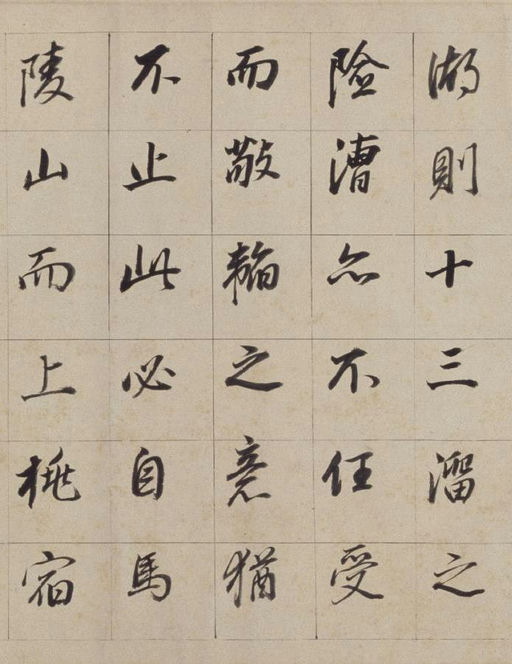 湖則十三溜之
險漕亦不任受
而敵艪之意猶
不止此必自馬
陵山而上桃宿